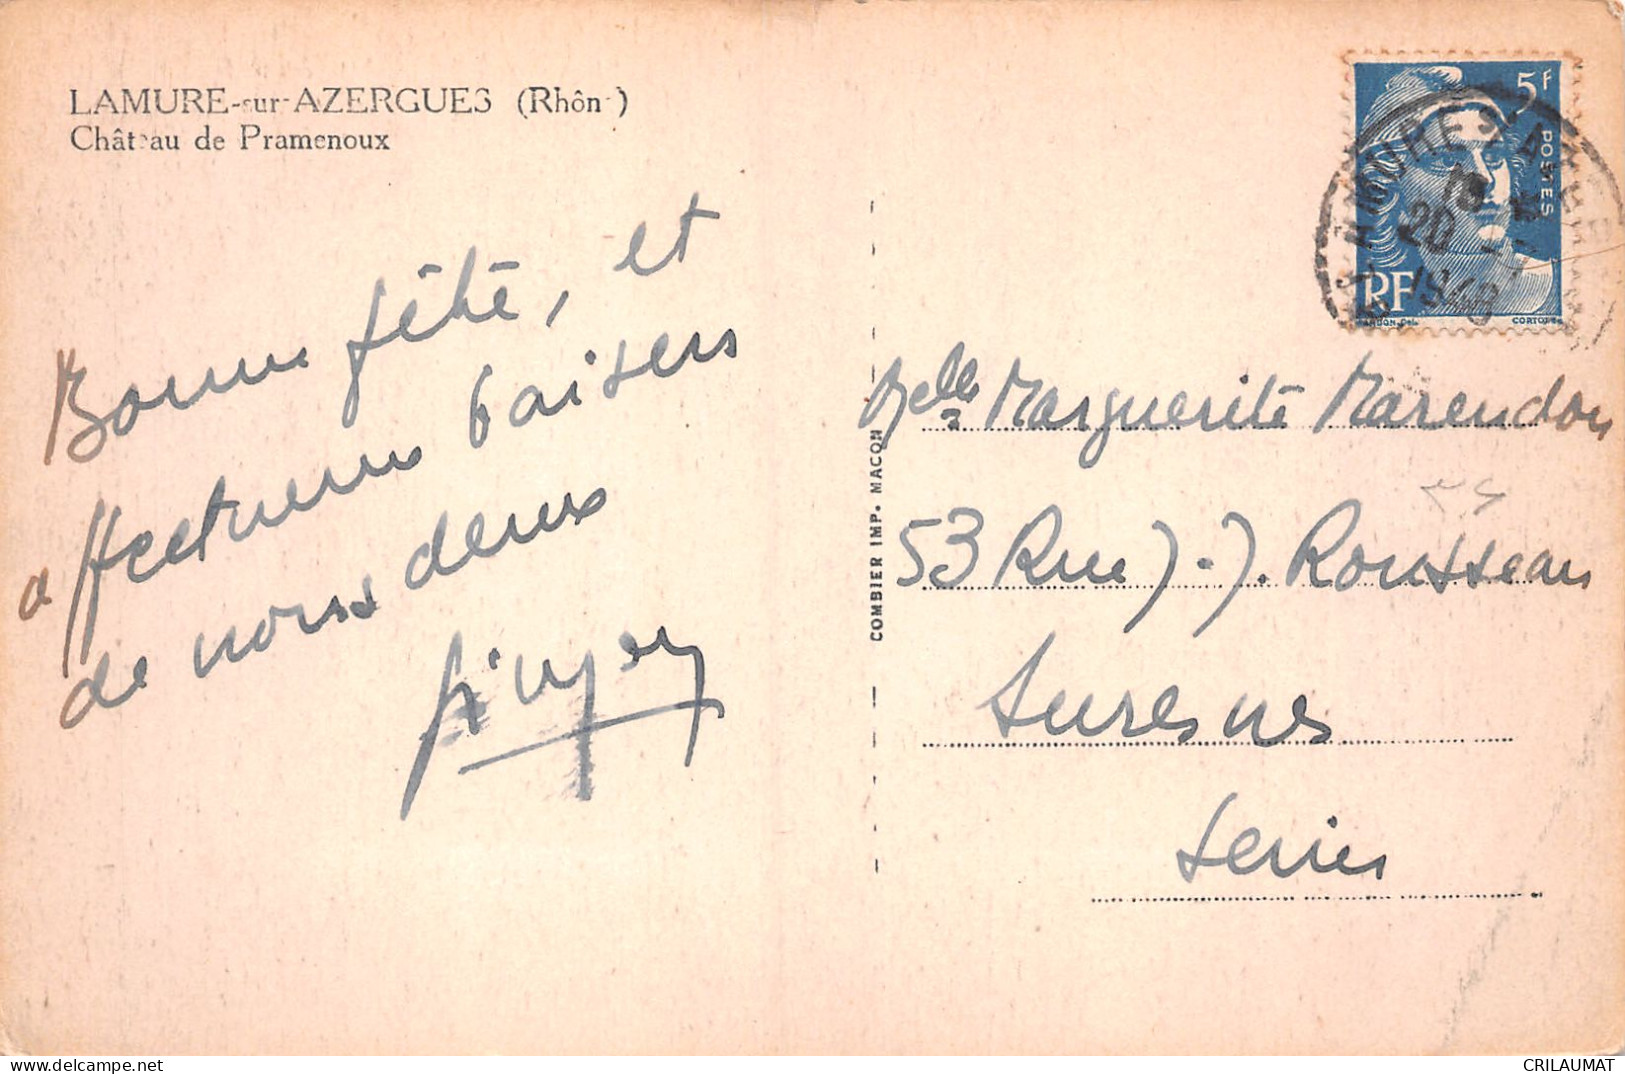 LAMURE-sur-AZERGUES (Rhône)
Château de Pramenoux
Bonne fête, et
affectueux baisers
de nous deux
COMBIER IMP. MACON
5F
POSTES
RF
CORTOT
LAMURE S/AZERGUES
20
1948
Melle Marguerite Marendon
53 Rue J.-J. Rousseau
Suresnes
Seine
CRILAUMAT